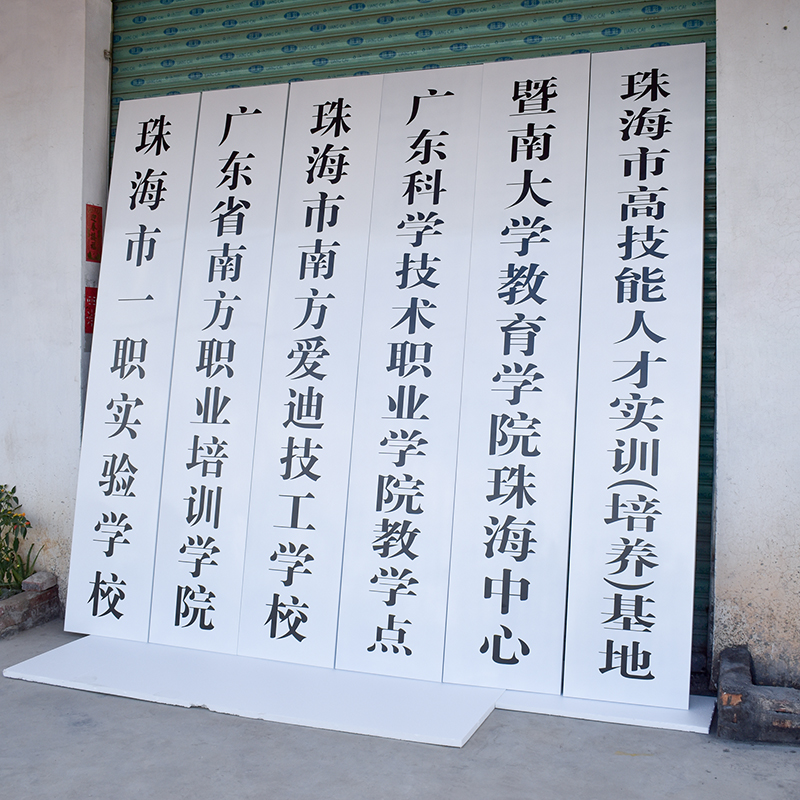 珠海市一职实验学校
广东省南方职业培训学院
珠海市南方爱迪技工学校
广东科学技术职业学院教学点
暨南大学教育学院珠海中心
珠海市高技能人才实训(培养)基地